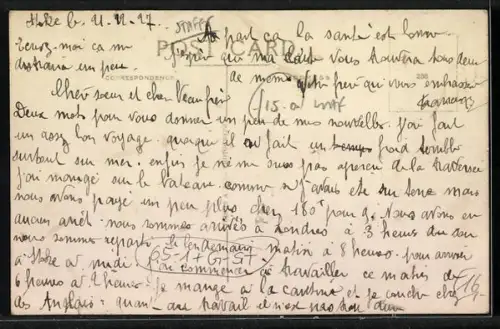 Stoke le 11.11.27.
STAFFS
A part ça la santé est bonne.
POST CARD
Ecrivez moi ça me
j'espère que ma carte vous trouvera tous deux
distraira un peu.
de meme
frère qui vous embrasse
CORRESPONDENCE
François
Cher soeur et cher Beau frère
15.0
Deux mots pour vous donner un peu de mes nouvelles. j'ai fait
un assez bon voyage. quoique il ai fait un temps
surtout sur mer. enfin je ne me suis pas apercu de la traversée
j'ai mangé sur le bateau comme si j'avais eté sur terre mais
nous avons payé un peu plus cher 180 pour 9. Nous avons eu
aucun arrêt. nous sommes arrivés à Londres à 3 heures du soir
nous sommes reparti le lendemain matin à 8 heures. pour arriver
à Stoke a midi
65-1+G-ST
j'ai commencer a travailler ce matin de
6 heures a 2 heures je mange a la cantine et je couche chez
des Anglais. quant au travail il n'est pas